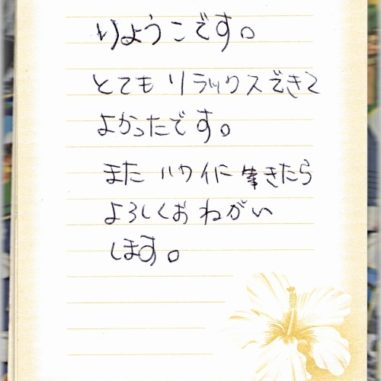 りょうこです。
とてもリラックスできて
よかったです。
またハワイに来きたら
よろしくおねがい
します。